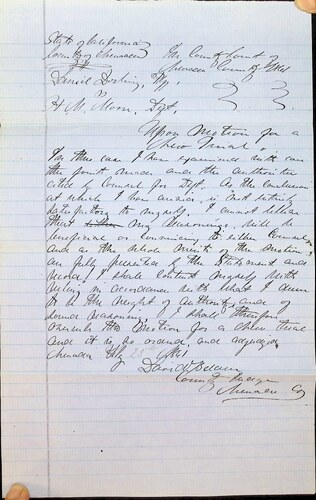 State of California
County of
Daniel , Plff,
H. M. Moon, Deft,
The County Court of
County 1861
Upon Motion for a
New Trial,
In this case I have examined with care
the point made and the authorities
cited by Counsel for Deft, As the conclusion
at which I have arrived, is not entirely
satisfactory to myself. I cannot believe
that my reasoning, will be
beneficial or convincing to either Counsel,
and as the whole merits of the motion,
are fully presented by the Statement and
record, I shall content myself with
ruling in accordance with what I deem
to be the weight of authority and of
sound reasoning, I shall therefore
overrule the motion for a new trial
and it is, so ordered, and adjudged
1861
David
County Judge
Co